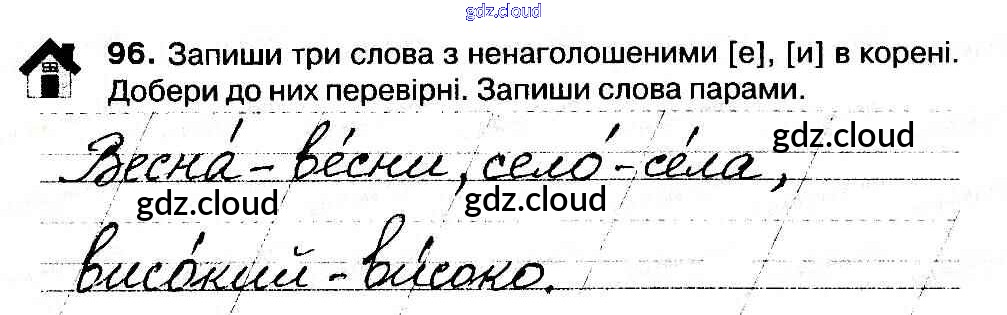 gdz.cloud
96. Запиши три слова з ненаголошеними [е], [и] в корені.
Добери до них перевірні. Запиши слова парами.
gdz.cloud
Весна́ – ве́сни, село́ – се́ла,
gdz.cloud gdz.cloud
висо́кий – ви́соко.